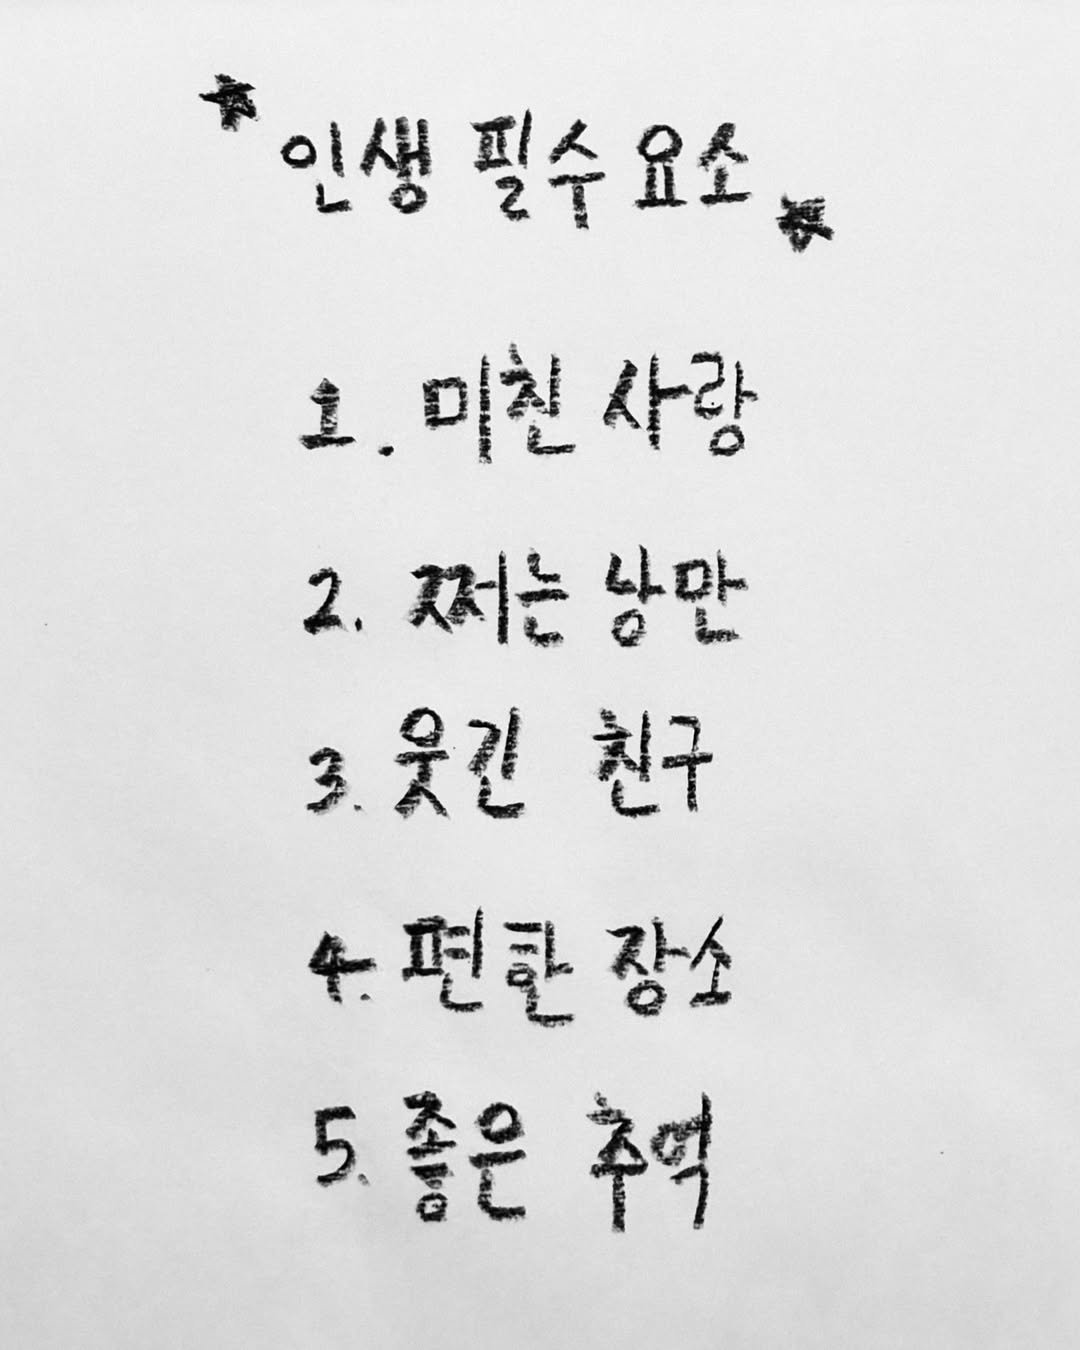 ★인생 필수 요소★
1. 미친 사랑
2. 쩌는 낭만
3. 웃긴 친구
4. 편한 장소
5. 좋은 추억